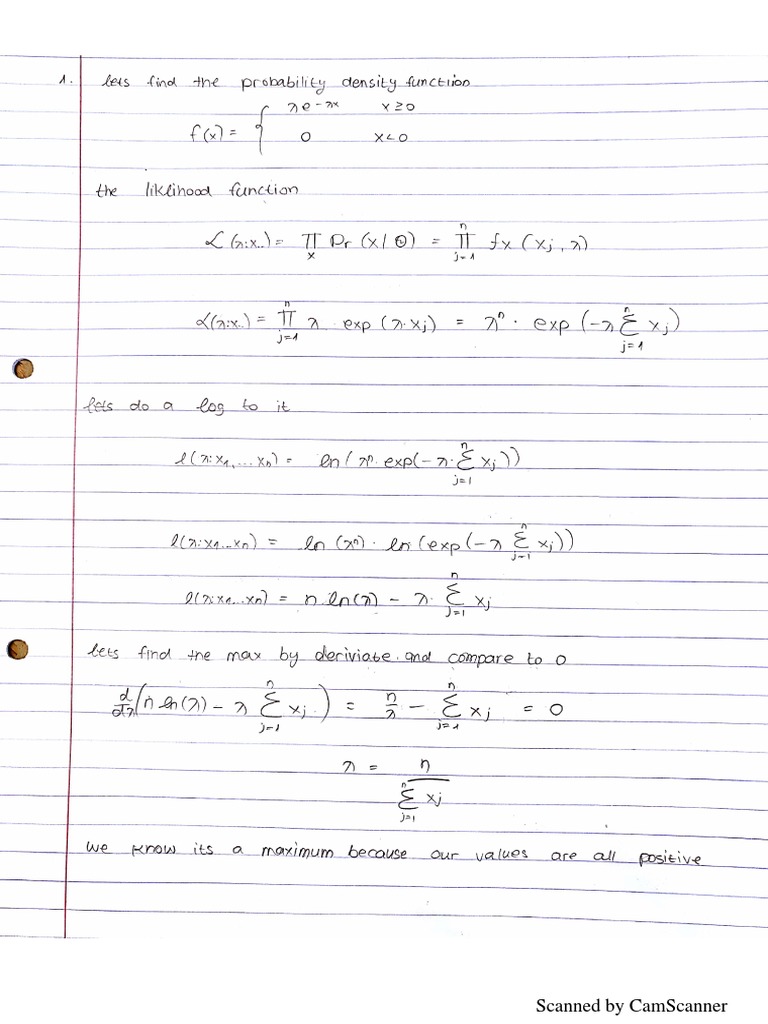 1. lets find the probability density function
f(x) = { λe^-λx x ≥ 0
0 x < 0
the liklihood function
ℒ(λ:x..) = ∏_x Pr(x/Θ) = ∏_{j=1}^n fx(xj, λ)
ℒ(λ:x..) = ∏_{j=1}^n λ exp(λ·xj) = λ^n · exp(-λ ∑_{j=1}^n xj)
lets do a log to it
l(λ:x1,...xn) = ln(λ^n·exp(-λ·∑_{j=1}^n xj))
l(λ:x1...xn) = ln(λ^n)·ln(exp(-λ ∑_{j=1}^n xj))
l(λ:x1...xn) = n ln(λ) - λ·∑_{j=1}^n xj
lets find the max by deriviate and compare to 0
d/dλ(n ln(λ) - λ ∑_{j=1}^n xj) = n/λ - ∑_{j=1}^n xj = 0
λ = n / ∑_{j=1}^n xj
we know its a maximum because our values are all positive
Scanned by CamScanner